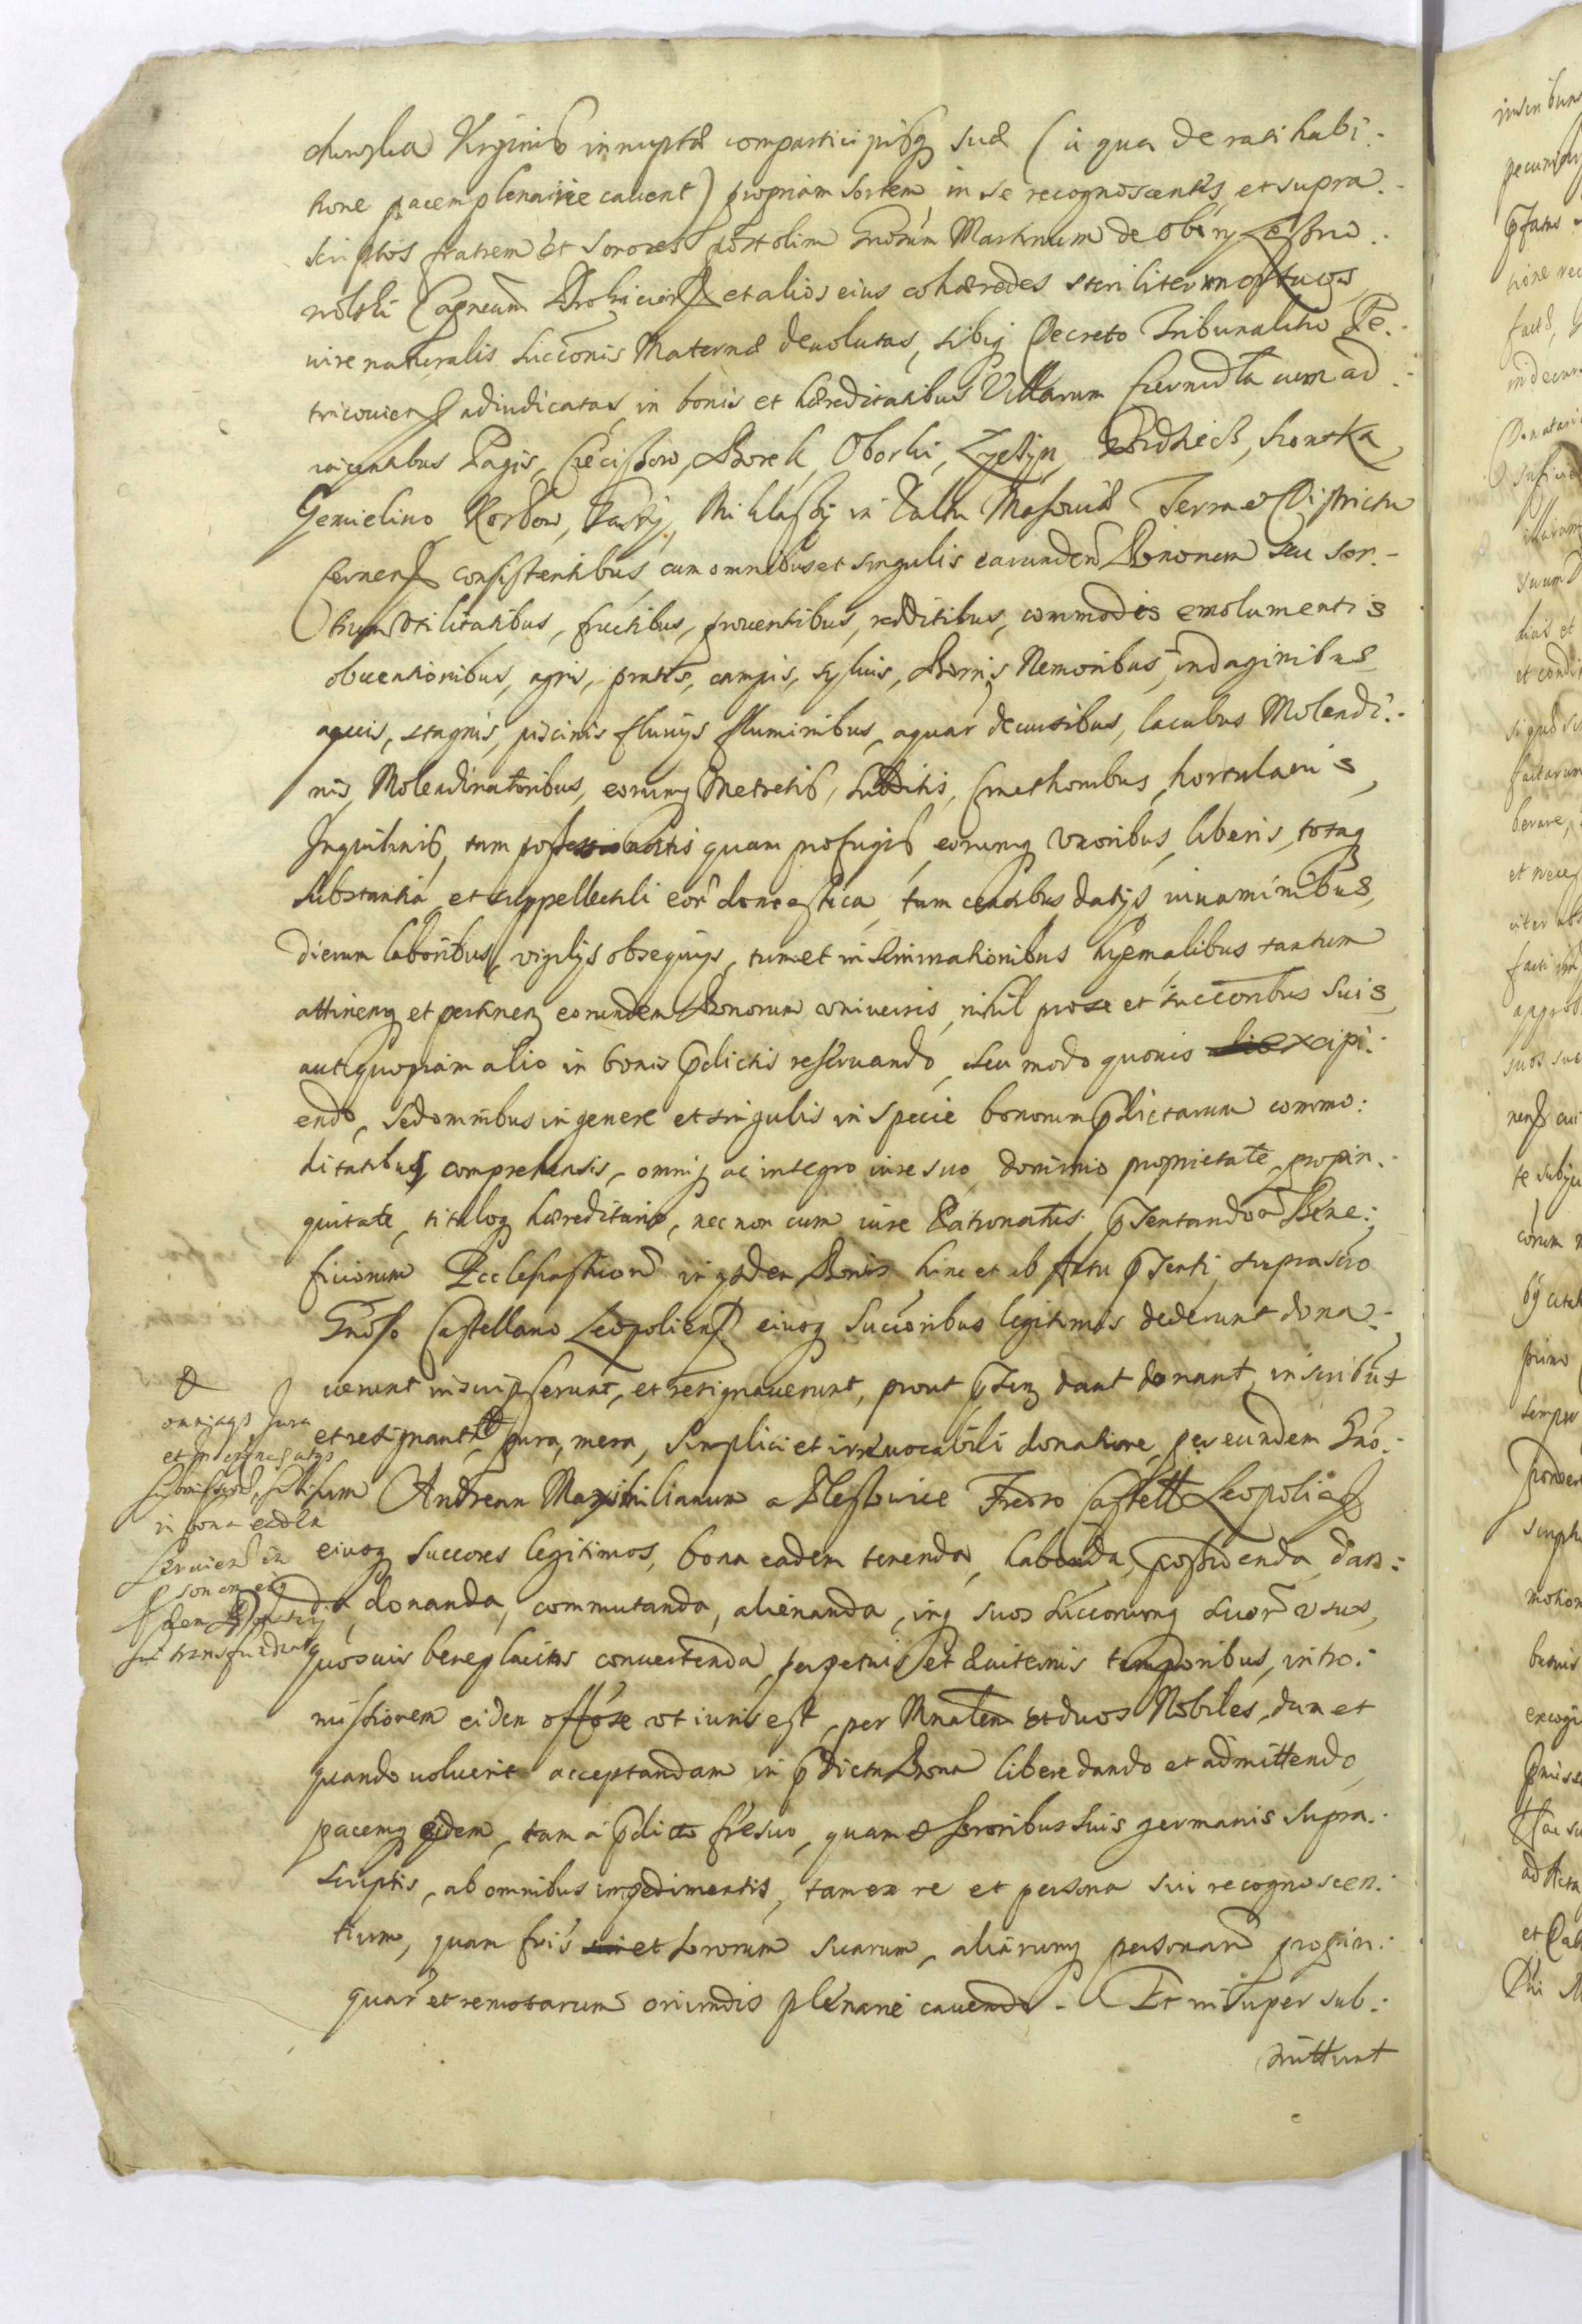 Virginis innuptæ compartici pisq suæ (à qua de rati habi:
tione pacem plenarie cauent) propriam sortem in se recognoscentes et supra.
scriptos fratrem et sorores post olim Gnosum Martinum de
Capneum et alios eius cohæredes steriliter mortuos
iure naturalis Succonis Maternæ deuolutas, sibiq Decreto Tribunalitio Pe.
tricouien adiudicatas in bonis et hæreditatibus Villarum cum ad
iacentibus Pagis, Borek, Oborki,
in Palatu Masouiæ Terra et Districtu
Cernen consistentibus, cum omnibus et singulis earundem Bonorum seu sor-
tium vtilitatibus, fructibus, prouentibus, redditibus, commodis emolumentis
obuentionibus, agris, pratis, campis, syluis, Borris Nemoribus, indaginibus
aquis, stagnis, piscinis fluuijs fluminibus, aquar decursibus, lacubus Molendi:
nis, Molendinatoribus, eorumq Metretis, Subditis, Cmethonibus, hortulanis,
Inquilinis, tam quam profugis, eorumq vxoribus, liberis, totaq
substantia et suppellectili eor domestica, tum censibus datijs, iuuaminibus,
dierum laboribus, vigilijs obsequijs, tum et in seminationibus hyemalibus tantum
attinen et pertinen eorundem Bonorum vniuersis, nihil pro se et succoribus suis
aut quopiam alio in bonis pdictis reseruando, seu modo quouis excipi:
endo, sed omnibus in genere et singulis in specie bonorum pdictarum commo:
ditatibus comprehensis, omniq ac integro iure suo, dominio proprietate, propin:
quitate, tituloq hæreditario, nec non cum iure Patronatus, pntandor Bene:
ficiorum Ecclesiasticor in ijsdem Bonis hinc et ab Actu pnti, suprascto
Gnoso Castellano Leopolien eiusq Succoribus legitimis dederunt dona:
uerunt inscripserunt, et resignauerunt, prout pntiq dant donant, inscribut
et resignant, pura, mera, simplici et irreuocabili donatione, per eundem Gno:
sum Andream Maximilianum a Fredro Castell Leopolien
eiusq Succores legitimos, bona eadem tenenda, habenda, possidenda, dan:
da, donanda, commutanda, alienanda, inq suos Succorumq suor vsus,
quosuis beneplacitos conuertenda, perpetuis et æuiternis temporibus, intro:
missionem eidem vt iuris est, per Mnalem et duos Nobiles, dum et
quando voluerit acceptandam in pdicta Bona libere dando et admittendo,
pacemq eidem, tam à pdicto fre suo, quam et sororibus suis germanis supra:
scriptis, ab omnibus impedimentis, tam ex re et persona sui recognoscen:
tium, quam fris et sororum suarum, aliarumq personar propin:
quar et remotarum oriundis plenarie cauendo. Et insuper sub:
mittunt
omniaqs Jura
in bona eadem
seruien in
transfundut